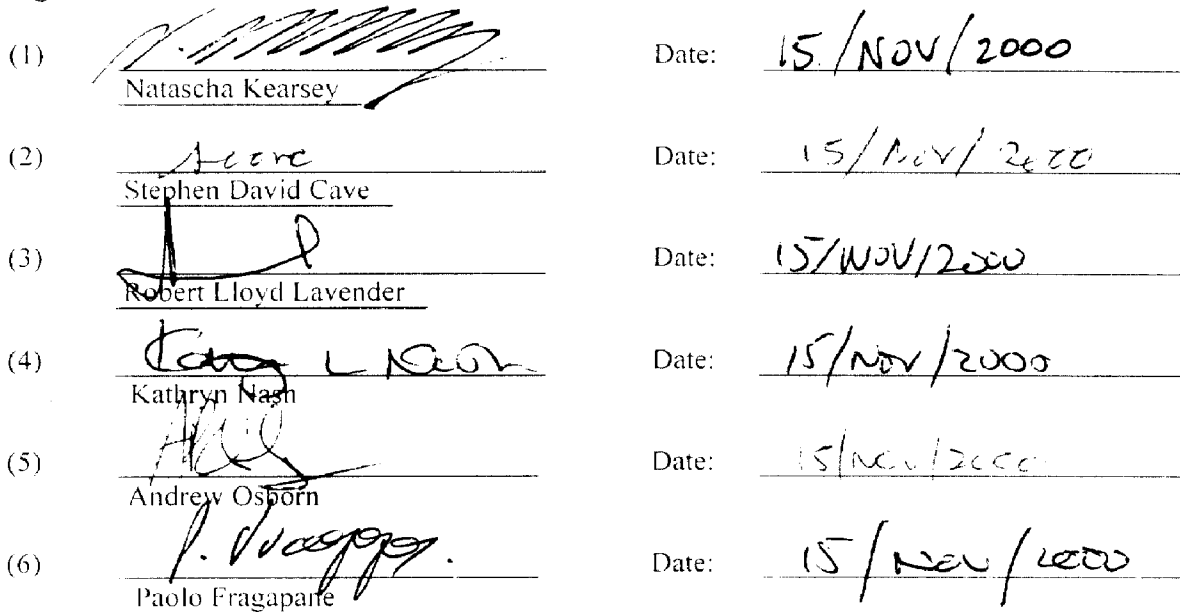 (1) Date: 15/NOV/2000
Natascha Kearsey
(2) Date: 15/NOV/2000
Stephen David Cave
(3) Date: 15/NOV/2000
Robert Lloyd Lavender
(4) Kathy L Nash Date: 15/NOV/2000
Kathryn Nash
(5) Date: 15/NOV/2000
Andrew Osborn
(6) Date: 15/NOV/2000
Paolo Fragapane